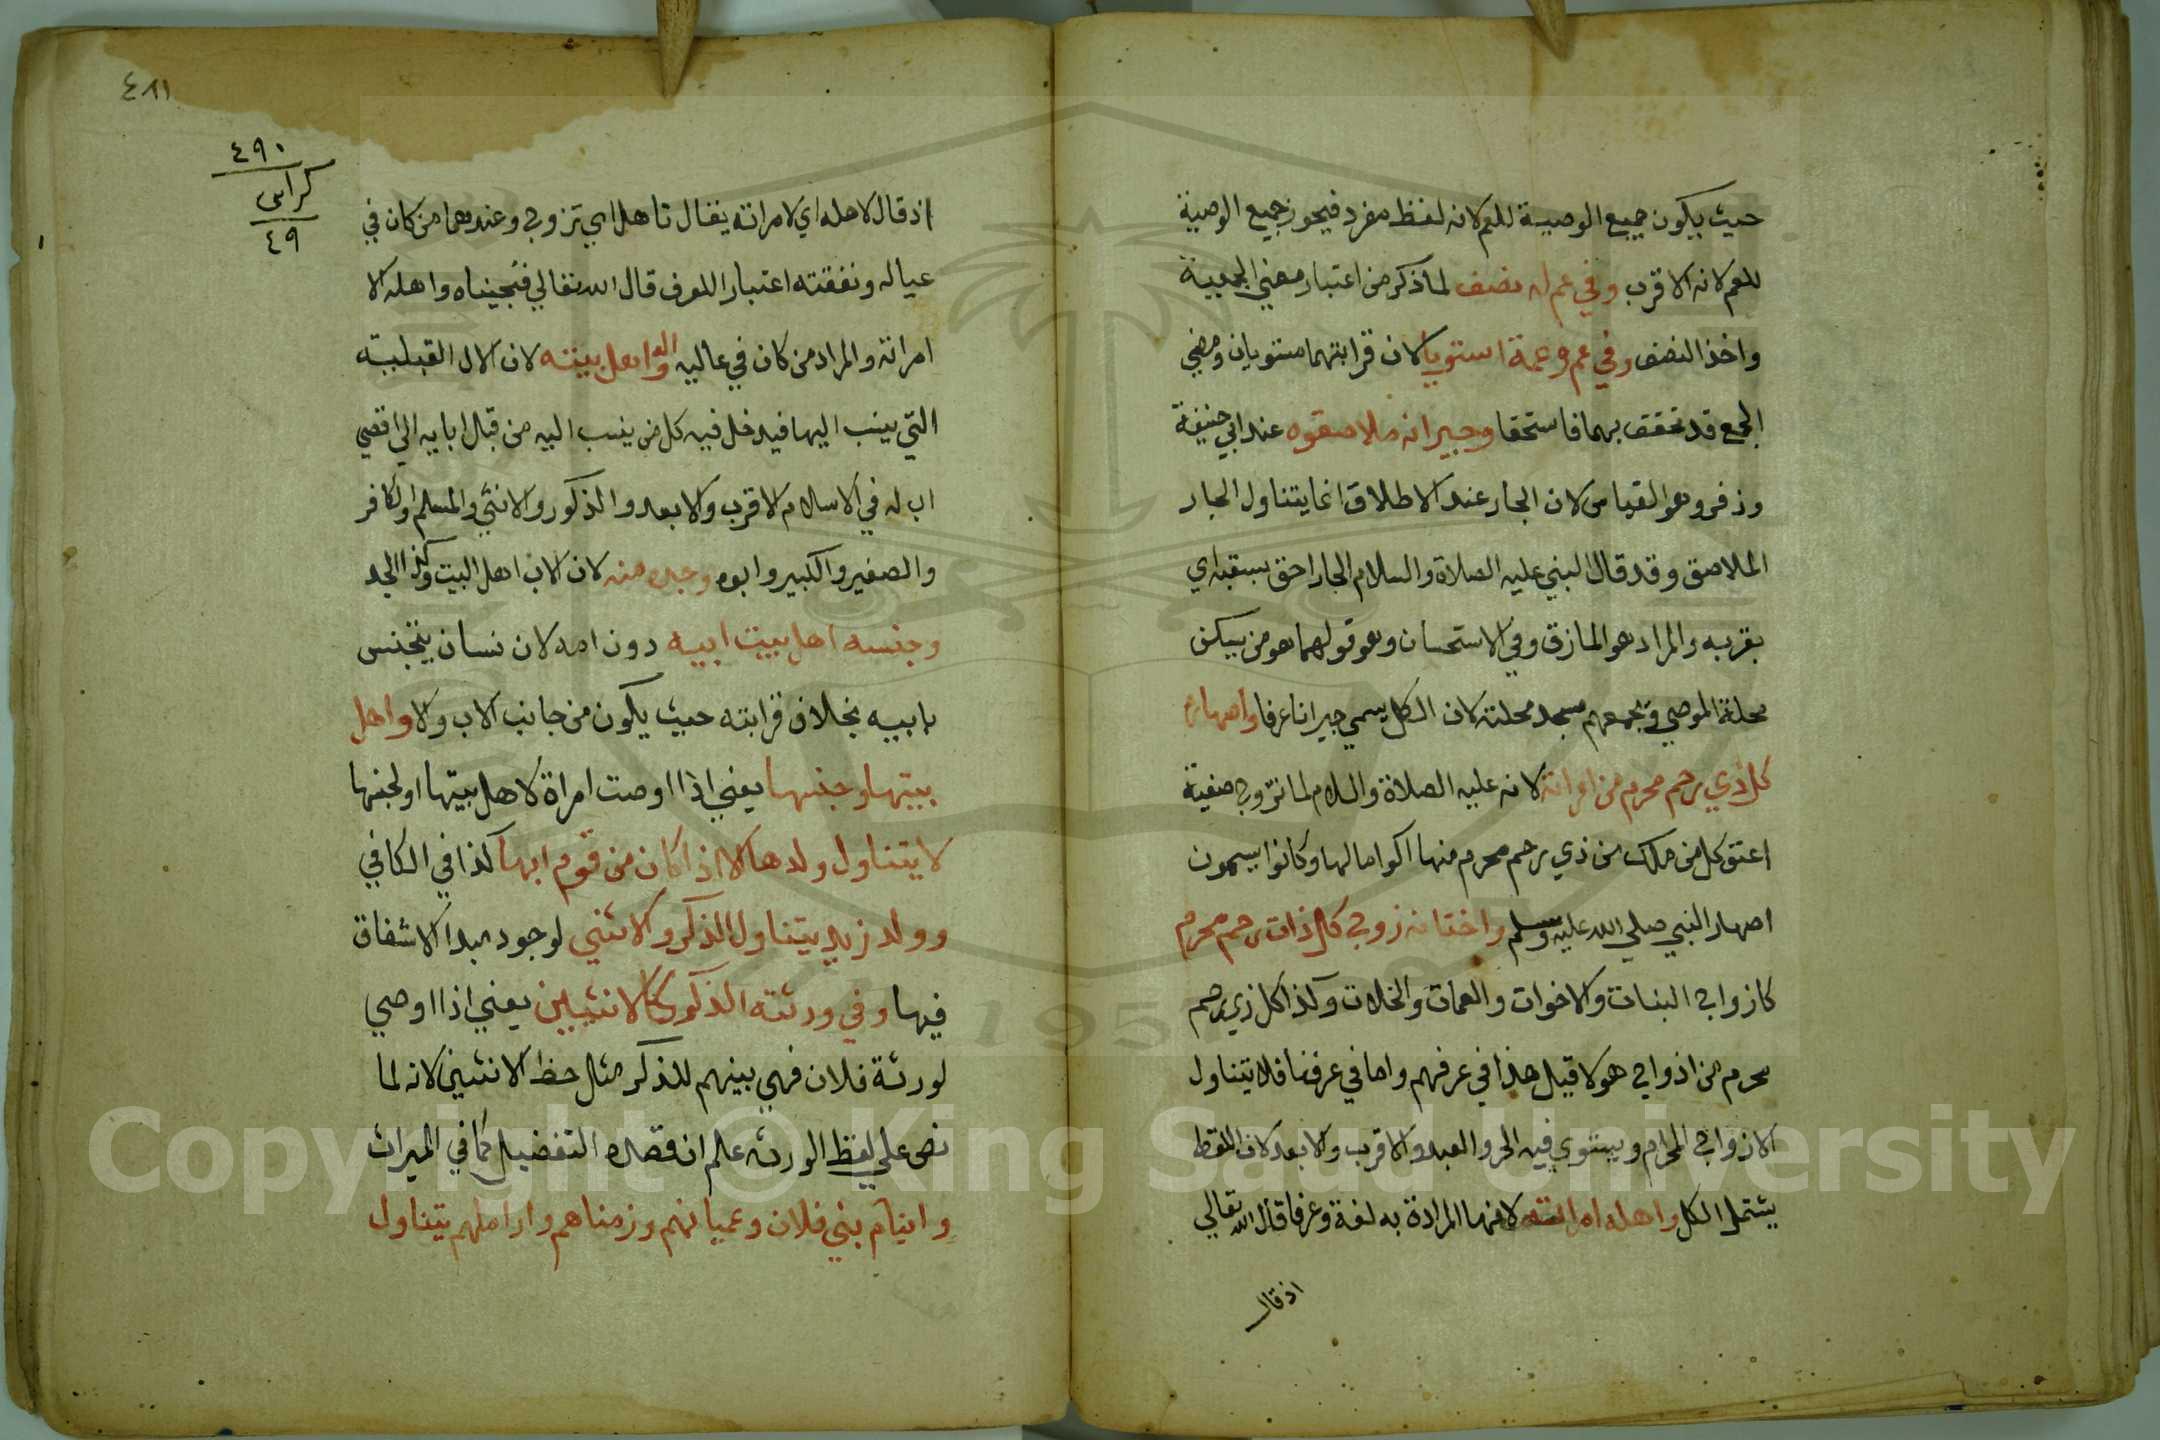 حيث يكون جميع الوصية للعم لانه لفظ مفرد فيحوز جميع الوصية
للعم لانه الاقرب وفي عم له نصف لما ذكر من اعتبار معني الجمعية
واخذ النصف وفي عم وعمة استويا لان قرابتهما مستويان ومعني
الجمع قد تحقق بهما فاستحقا وجيرانه ملاصقوه عند ابي حنيفة
وزفر وهو القياس لان الجار عند الاطلاق انما يتناول الجار
الملاصق وقد قال النبي عليه الصلاة والسلام الجار احق بسقبه اي
بقربه والمراد هو المازق وفي الاستحسان وهو قولهما هو من يسكن
محلة الموصي ويجمعهم مسجد محلته لان الكل يسمي جيرانا عرفا واصهاره
كل ذي رحم محرم من امراته لانه عليه الصلاة والسلام لما تزوج صفية
اعتق كل من ملك من ذي رحم محرم منها اكراما لها وكانوا يسمون
اصهار النبي صلي الله عليه وسلم واختانه زوج كل ذات رحم محرم
كازواج البنات والاخوات والعمات والخالات وكذا كل ذي رحم
محرم من ازواج هولا قيل هذا في عرفهم واما في عرفنا فلا يتناول
الا زواج المحرام ويستوي فيه الحر والعبد والاقرب والابعد لان اللفظ
يشتمل الكل واهله امراته لانها المرادة به لغة وعرفا قال الله تعالي
اذ قال
٤٨١
٤٩٠
كراس
٤٩
اذ قال لاهله اي لامراته يقال تاهل اي تزوج وعندهما من كان في
عياله ونفقته اعتبارا للعرف قال الله تعالي فنجيناه واهله الا
امراته والمراد من كان في عياله واله واهل بيته لان الال القبيلة
التي ينسب اليها فيدخل فيه كل من ينسب اليه من قبل ابايه الي اقصي
اب له في الاسلام الاقرب والابعد والذكور والانثي والمسلم والكافر
والصغير والكبير وابوه وجده منه لان الاب اهل البيت وكذا الجد
وجنسه اهل بيت ابيه دون امه لان نسان يتجنس
بابيه بخلاف قرابته حيث يكون من جانب الاب والا واهل
بيتها وجنسها يعني اذا اوصت امراة لاهل بيتها او لجنسها
لا يتناول ولدها الا اذا كان من قوم ابها كذا في الكافي
وولد زيد يتناول الذكر والانثي لوجود مبدا الاشقاق
فيها وفي ورثته الذكر كالانثيين يعني اذا اوصي
لورثة فلان فهي بينهم للذكر مثل حظ الانثيين لانه لما
نص علي لفظ الورثه علم ان قصده التفضيل كما في الميراث
وايتام بني فلان وعميانهم وزمناهم واراملهم يتناول
Copyright © King Saud University
1957